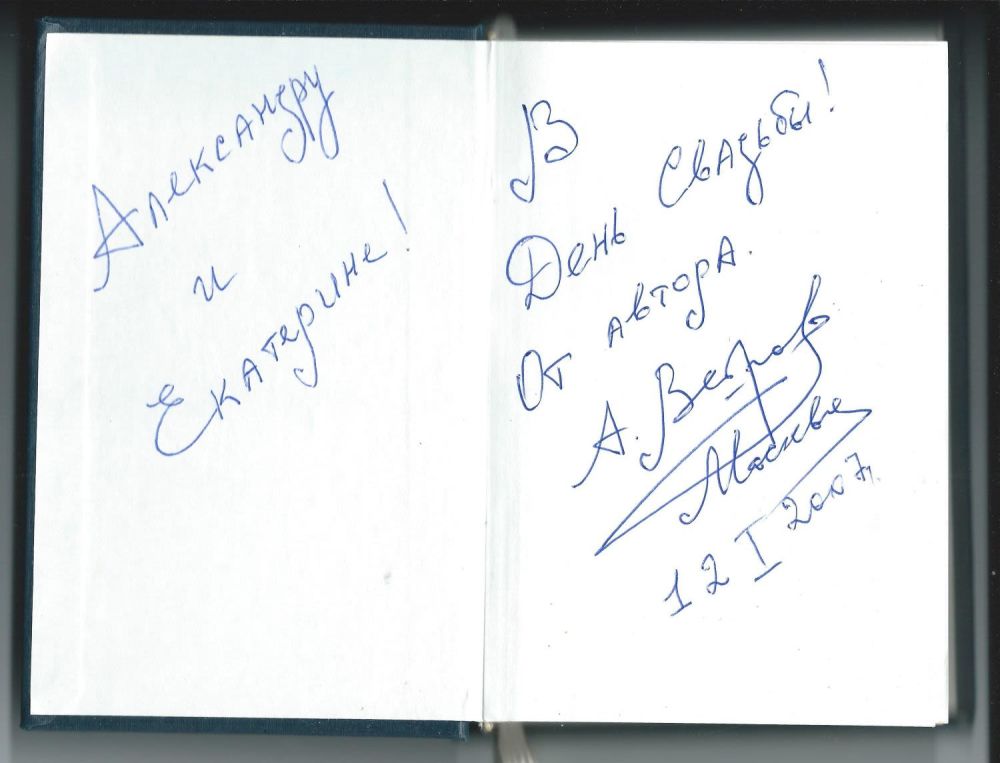 Александру
и
Екатерине!
В
День Свадьбы!
От автора.
А. Ветров
Москва
12 I 2007г.